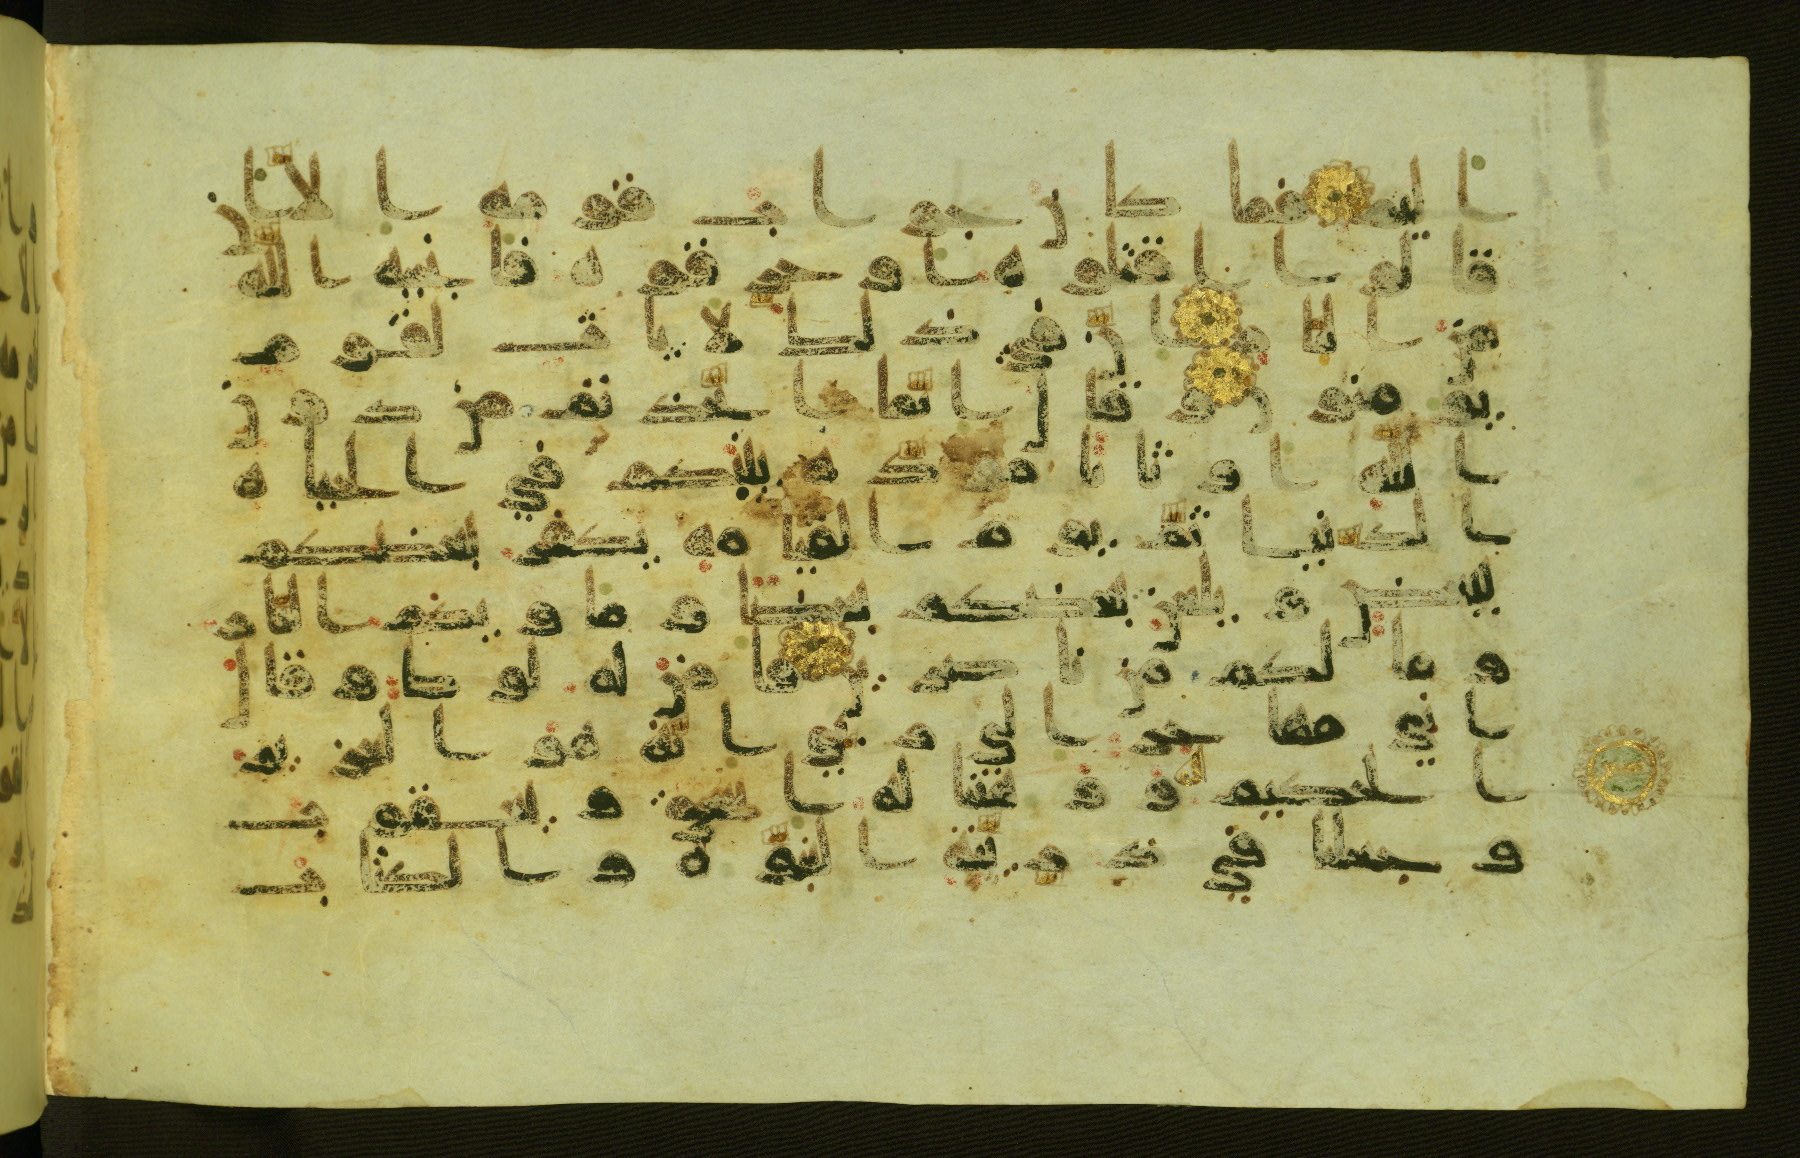 اليم فما كان جواب قومه الا ان
قالوا اقتلوه او حرقوه فانجيه الله
من النار ان في ذلك لايات لقوم
يومنون وقال انما اتخذتم من دون
الله اوثانا مودة بينكم في الحياة
الدنيا ثم يوم القيامة يكفر بعضكم
ببعض ويلعن بعضكم بعضا وماويكم النار
وما لكم من ناصرين فامن له لوط وقال
اني مهاجر الي ربي انه هو العزيز
الحكيم ووهبنا له اسحق ويعقوب
وجعلنا في ذريته النبوة والكتاب